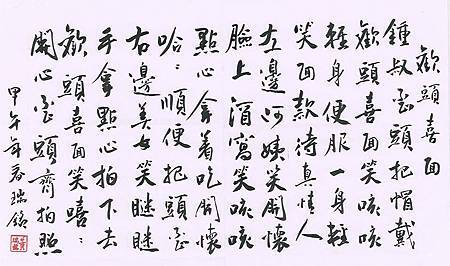 歡頭喜面
鍾叔歪頭把帽戴
歡頭喜面笑咳咳
輕身便服一身輕
笑面款待真情人
左邊阿姨笑開懷
臉上酒窩笑咳咳
點心拿着吃開懷
哈：順便把頭歪
右邊美女笑瞇瞇
手拿點心拍下去
歡頭喜面笑嘻：
開心歪頭齊拍照
甲午年春瑞銘